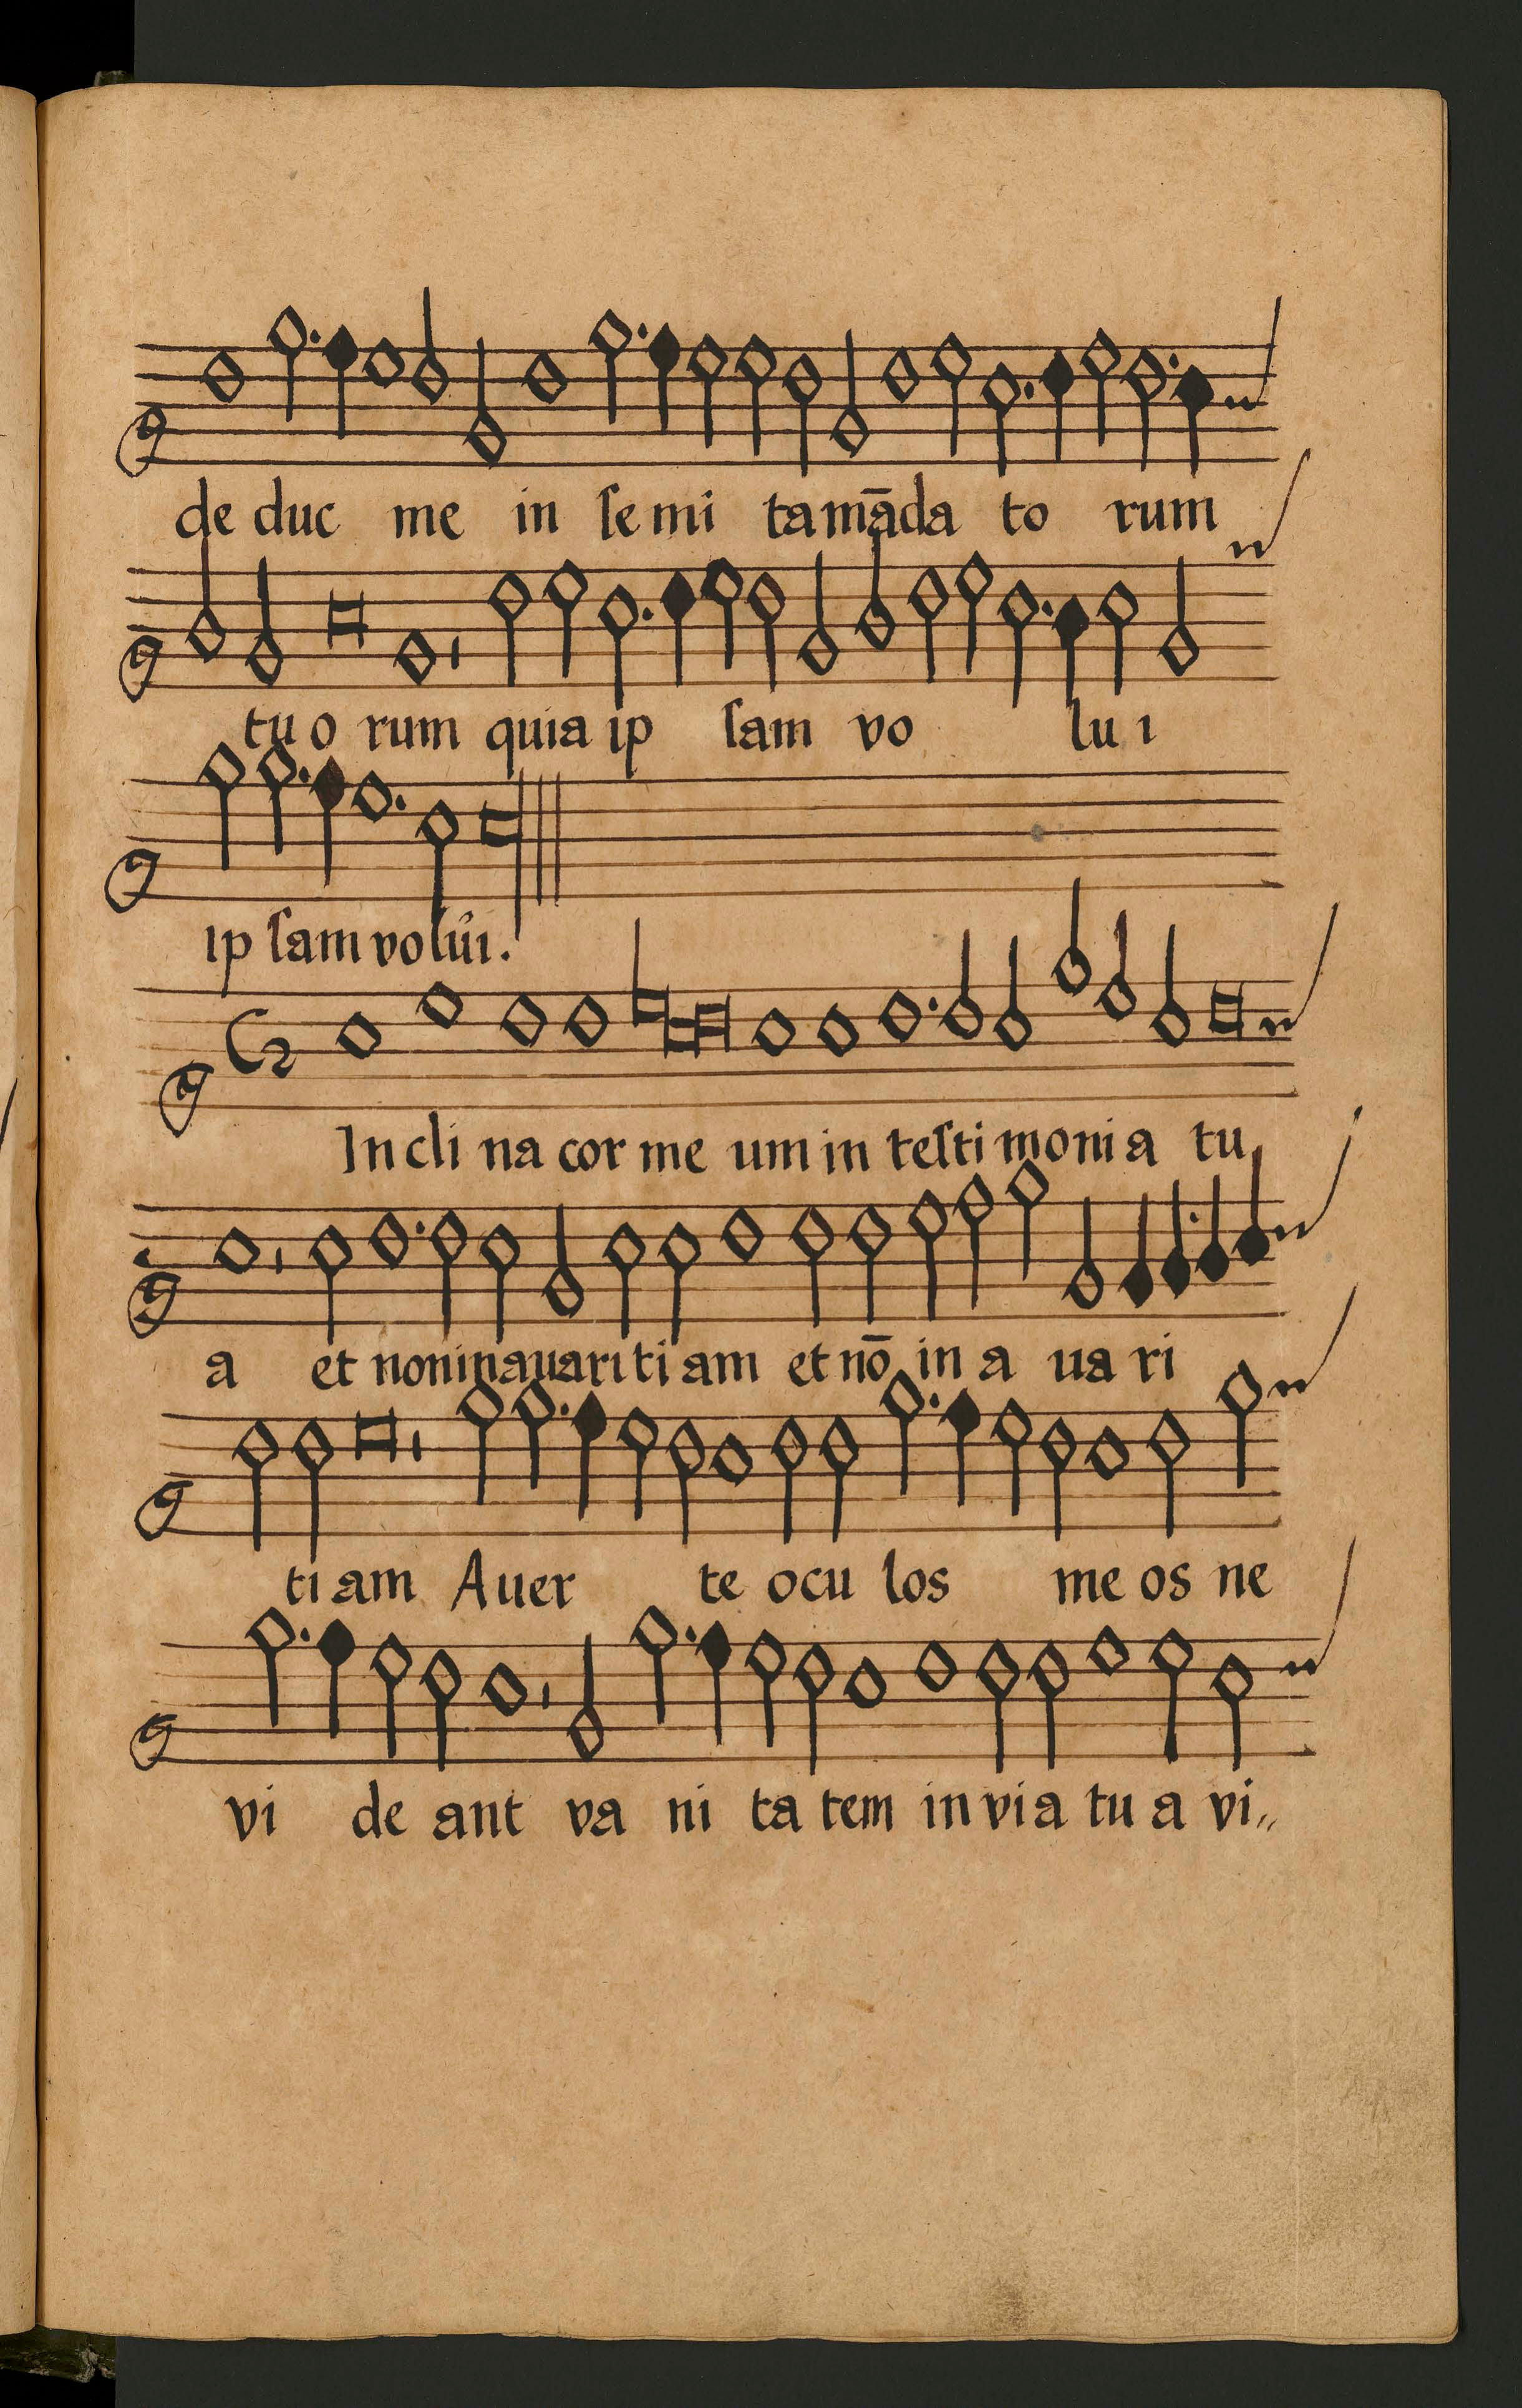 de duc me in ſe mi ta māda to rum
tu o rum quia ip ſam vo lu i
ip ſam volui.
In cli na cor me um in teſti moni a tu
a et non in auari ti am et nō in a ua ri
ti am A uer te ocu los me os ne
vi de ant va ni ta tem in via tu a vi„